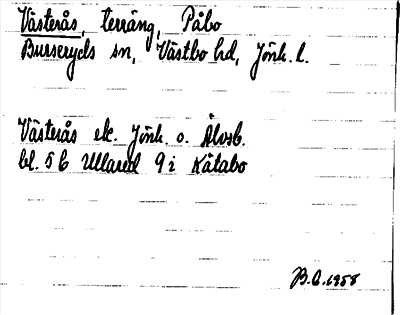 Västerås, terräng, Påbo
Burseryds sn, Västbo hd, Jönk. l.
Västerås ek. Jönk. o. Älvsb.
bl. 5 C Ullared 9 i Kätabo
B.O. 1958